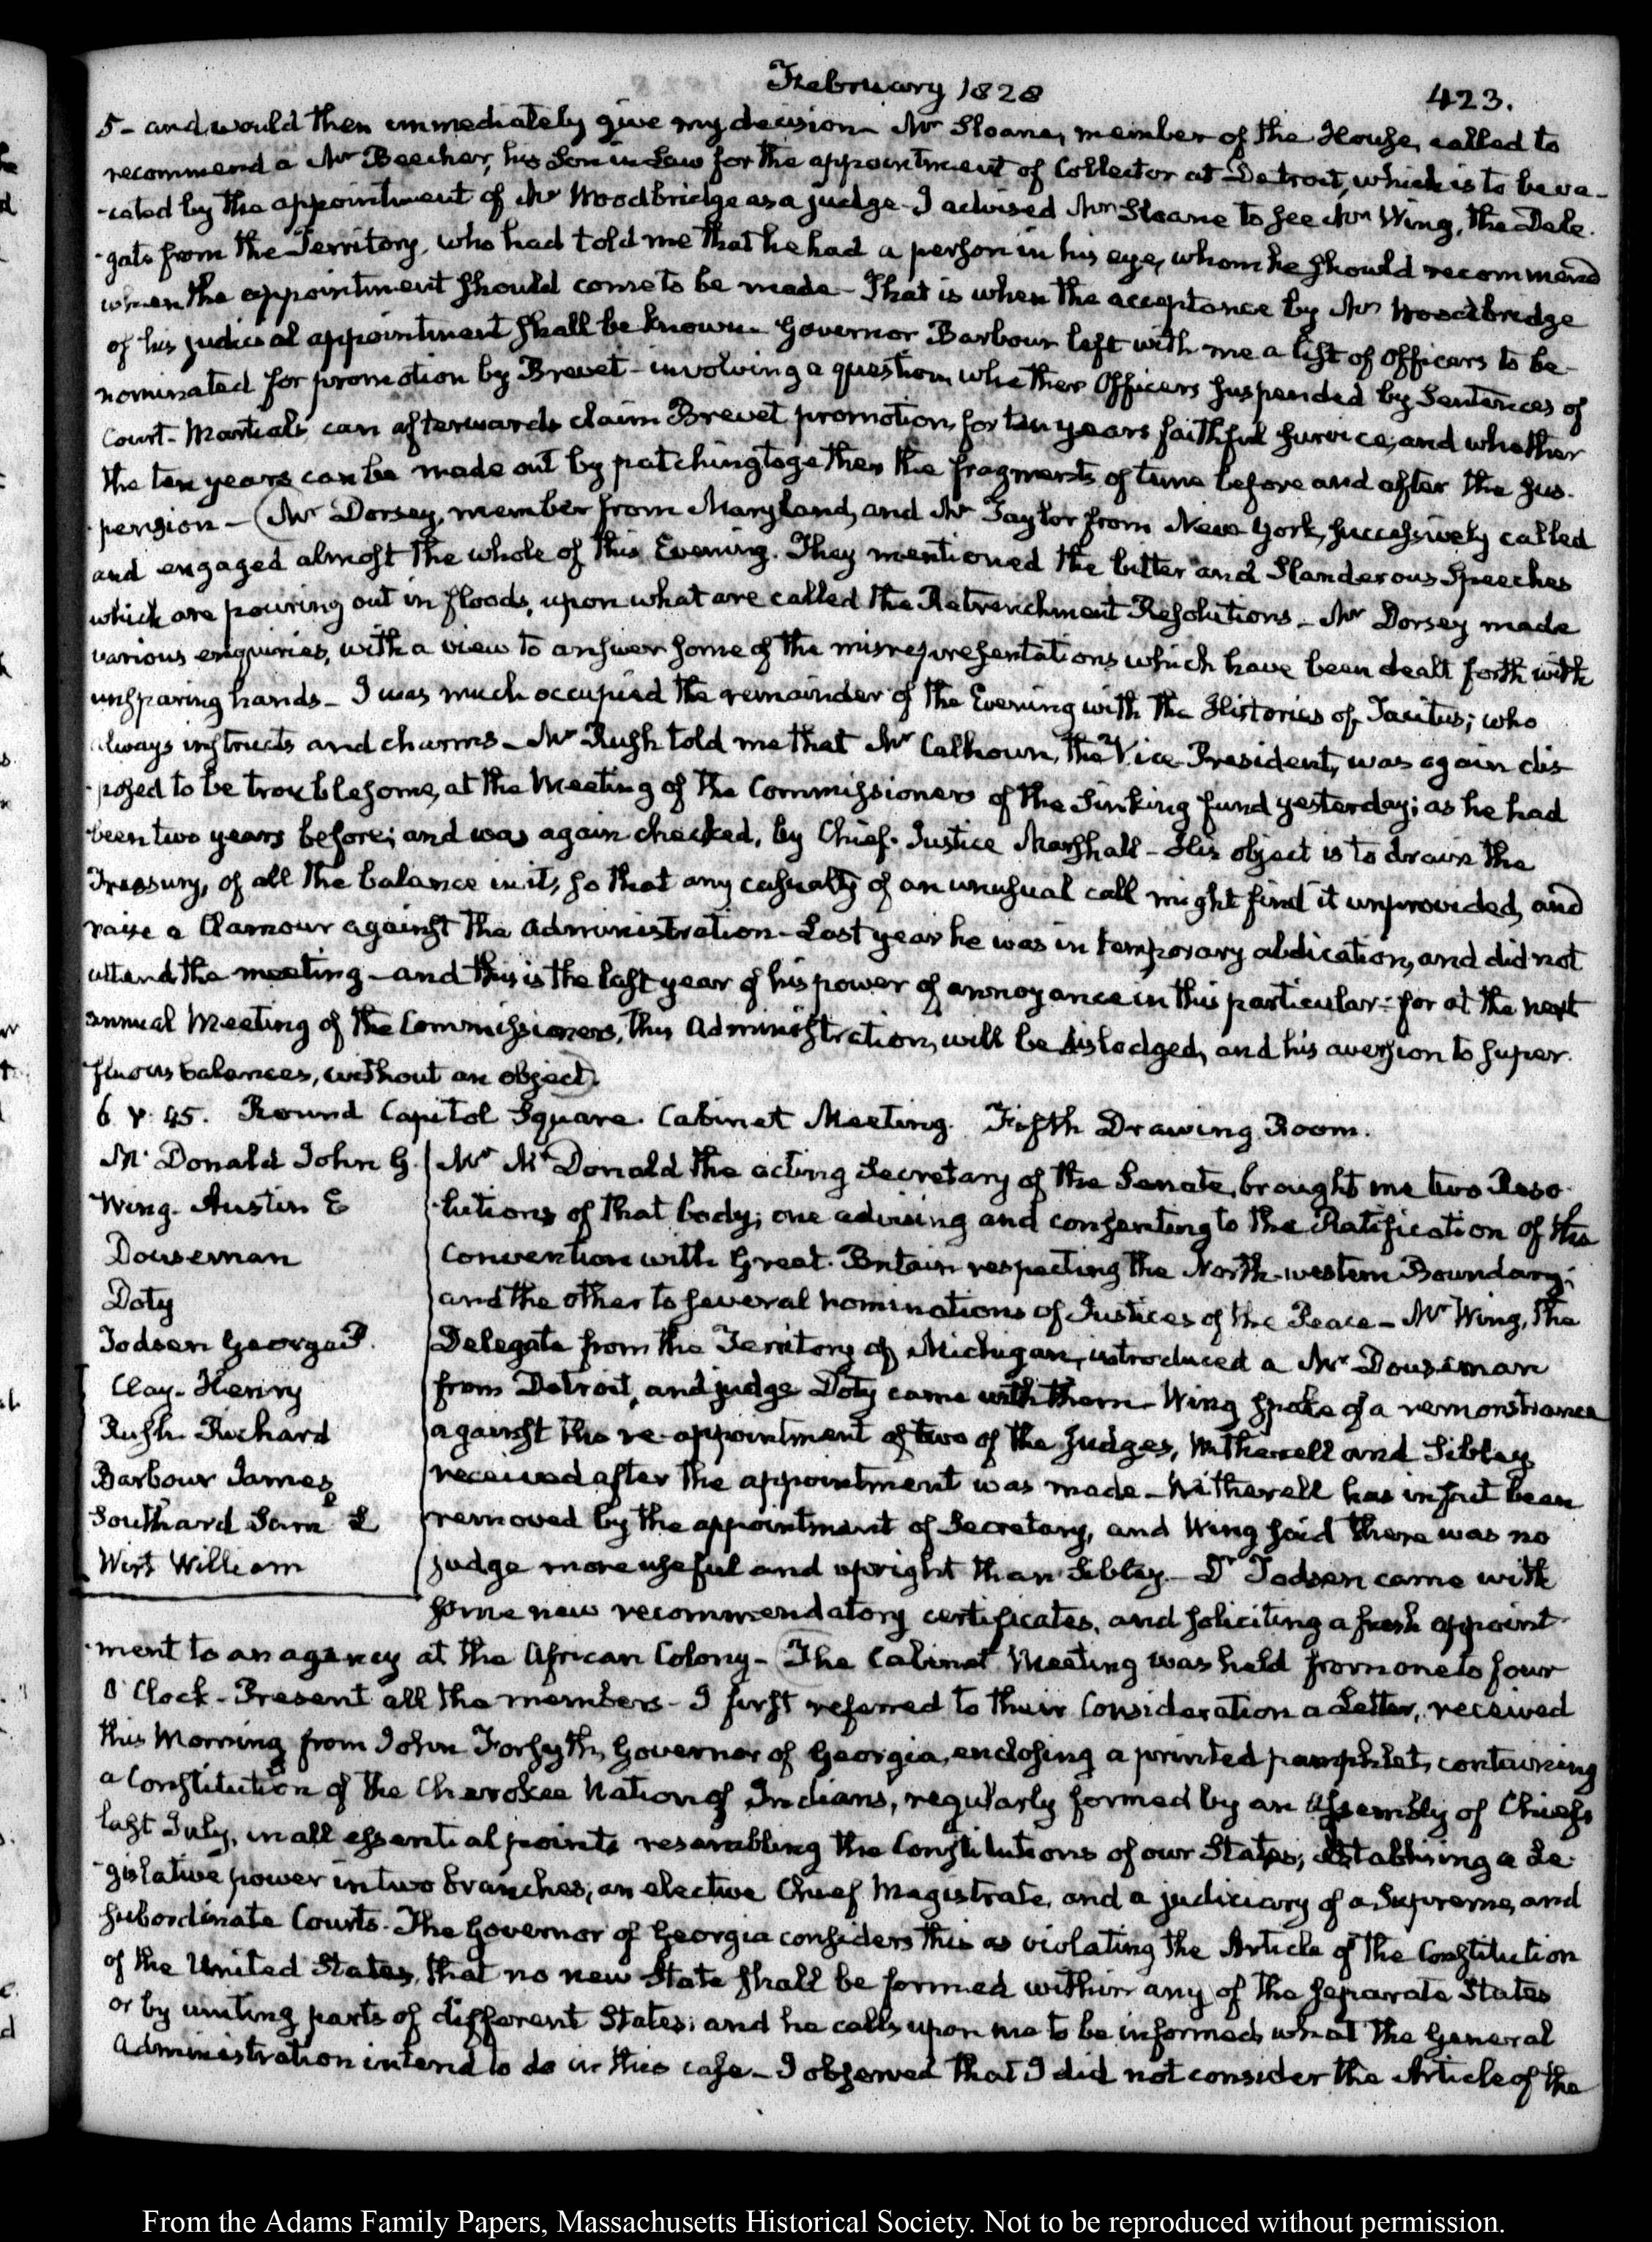 February 1828
423.
5 - and would then immediately give my decision - Mr Sloane, member of the House, called to
recommend a Mr Beecher, his Son in Law for the appointment of Collector at Detroit, which is to be va-
-cated by the appointment of Mr Woodbridge as a judge - I advised Mr Sloane to see Mr Wing, the Dele-
-gate from the Territory, who had told me that he had a person in his eye, whom he should recommend
when the appointment should come to be made - That is when the acceptance by Mr Woodbridge
of his judicial appointment shall be known - Governor Barbour left with me a list of Officers to be
nominated for promotion by Brevet - involving a question whether Officers suspended by Sentences of
Court-Martial, can afterwards claim Brevet promotion, for ten years faithful service, and whether
the ten years can be made out by patching together the fragments of time before and after the sus-
-pension - (Mr Dorsey, member from Maryland, and Mr Taylor from New York, successively called
and engaged almost the whole of this Evening. They mentioned the bitter and Slanderous Speeches
which are pouring out in floods, upon what are called the Retrenchment Resolutions - Mr Dorsey made
various enquiries, with a view to answer some of the misrepresentations which have been dealt forth with
unsparing hands - I was much occupied the remainder of the Evening with the Histories of Tacitus; who
always instructs and charms - Mr Rush told me that Mr Calhoun, the Vice-President, was again dis-
-posed to be troublesome, at the Meeting of the Commissioners of the Sinking fund yesterday; as he had
been two years before; and was again checked, by Chief-Justice Marshall - His object is to drain the
Treasury, of all the balance in it, so that any casualty of an unusual call might find it unprovided, and
raise a Clamour against the Administration - Last year he was in temporary abdication, and did not
attend the meeting - and this is the last year of his power of annoyance in this particular: for at the next
annual Meeting of the Commissioners, this Administration, will be dislodged, and his aversion to super-
-fluous balances, without an object).
6 V. 45. Round Capitol Square. Cabinet Meeting. Fifth Drawing Room.
Mc Donald John G.
Wing. Austin E
Douseman
Doty
Todsen George P.
Clay - Henry
Rush Richard
Barbour James
Southard Sam l L
Wirt William
Mr McDonald the acting Secretary of the Senate, brought me two Reso-
-lutions of that body; one advising and consenting to the Ratification of the
Convention with Great-Britain respecting the North-western Boundary;
and the other to several nominations of Justices of the Peace - Mr Wing, the
Delegate from the Territory of Michigan, introduced a Mr Douseman
from Detroit, and judge Doty came with them - Wing spoke of a remonstrance
against the re-appointment of two of the judges, Witherell and Sibley
received after the appointment was made - Witherell has in fact been
removed by the appointment of Secretary, and Wing said there was no
judge more useful and upright than Sibley - Dr Todsen came with
some new recommendatory certificates, and soliciting a fresh appoint-
-ment to an agency at the African Colony - (The Cabinet Meeting was held from one to four
O'Clock - Present all the members - I first referred to their Consideration a Letter, received
this Morning from John Forsyth, Governor of Georgia, enclosing a printed pamphlet, containing
a Constitution of the Cherokee Nation of Indians, regularly formed by an Assembly of Chiefs
last July, in all essential points resembling the Constitutions of our States; establishing a Le-
-gislative power in two branches, an elective Chief Magistrate, and a judiciary of a Supreme, and
subordinate Courts. The Governor of Georgia considers this as violating the Article of the Constitution
of the United States, that no new State shall be formed within any of the separate States
or by uniting parts of different States; and he calls upon me to be informed, what the General
Administration intend to do in this case - I observed that I did not consider the Article of the
From the Adams Family Papers, Massachusetts Historical Society. Not to be reproduced without permission.